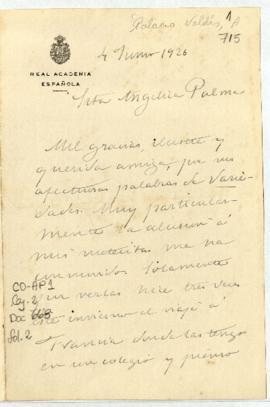 Palacio Valdés, A
1
715
4 Junio 1926
REAL ACADEMIA
ESPAÑOLA
Srta Angelica Palma
Mil gracias, ilustre y
querida amiga, por sus
afectuosas palabras de Varie-
dades. Muy particular-
mente la alusion á
mis nietecitas me ha
conmovido. Solamente
por verlas hice tres veces
este invierno el viaje á
Francia donde las tengo
en un colegio y pienso
CO-AP1
Leg. 2
Doc 668
fol. 2